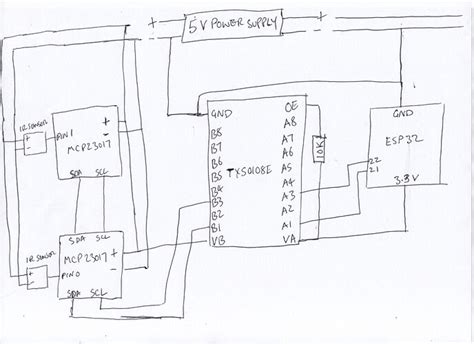 + 5V POWER SUPPLY +
- -
IR SENSOR
PIN 1
+
-
MCP23017
SDA SCL
SDA SCL
IR SENSOR
PIN0
MCP23017
+
-
SDA SCL
GND OE
B8 A8
B7 A7
B6 A6
B5 A5
B4 A4
B3 A3
B2 A2
B1 A1
VB VA
TXS0108E
10K
GND
ESP32
22
21
3.3V